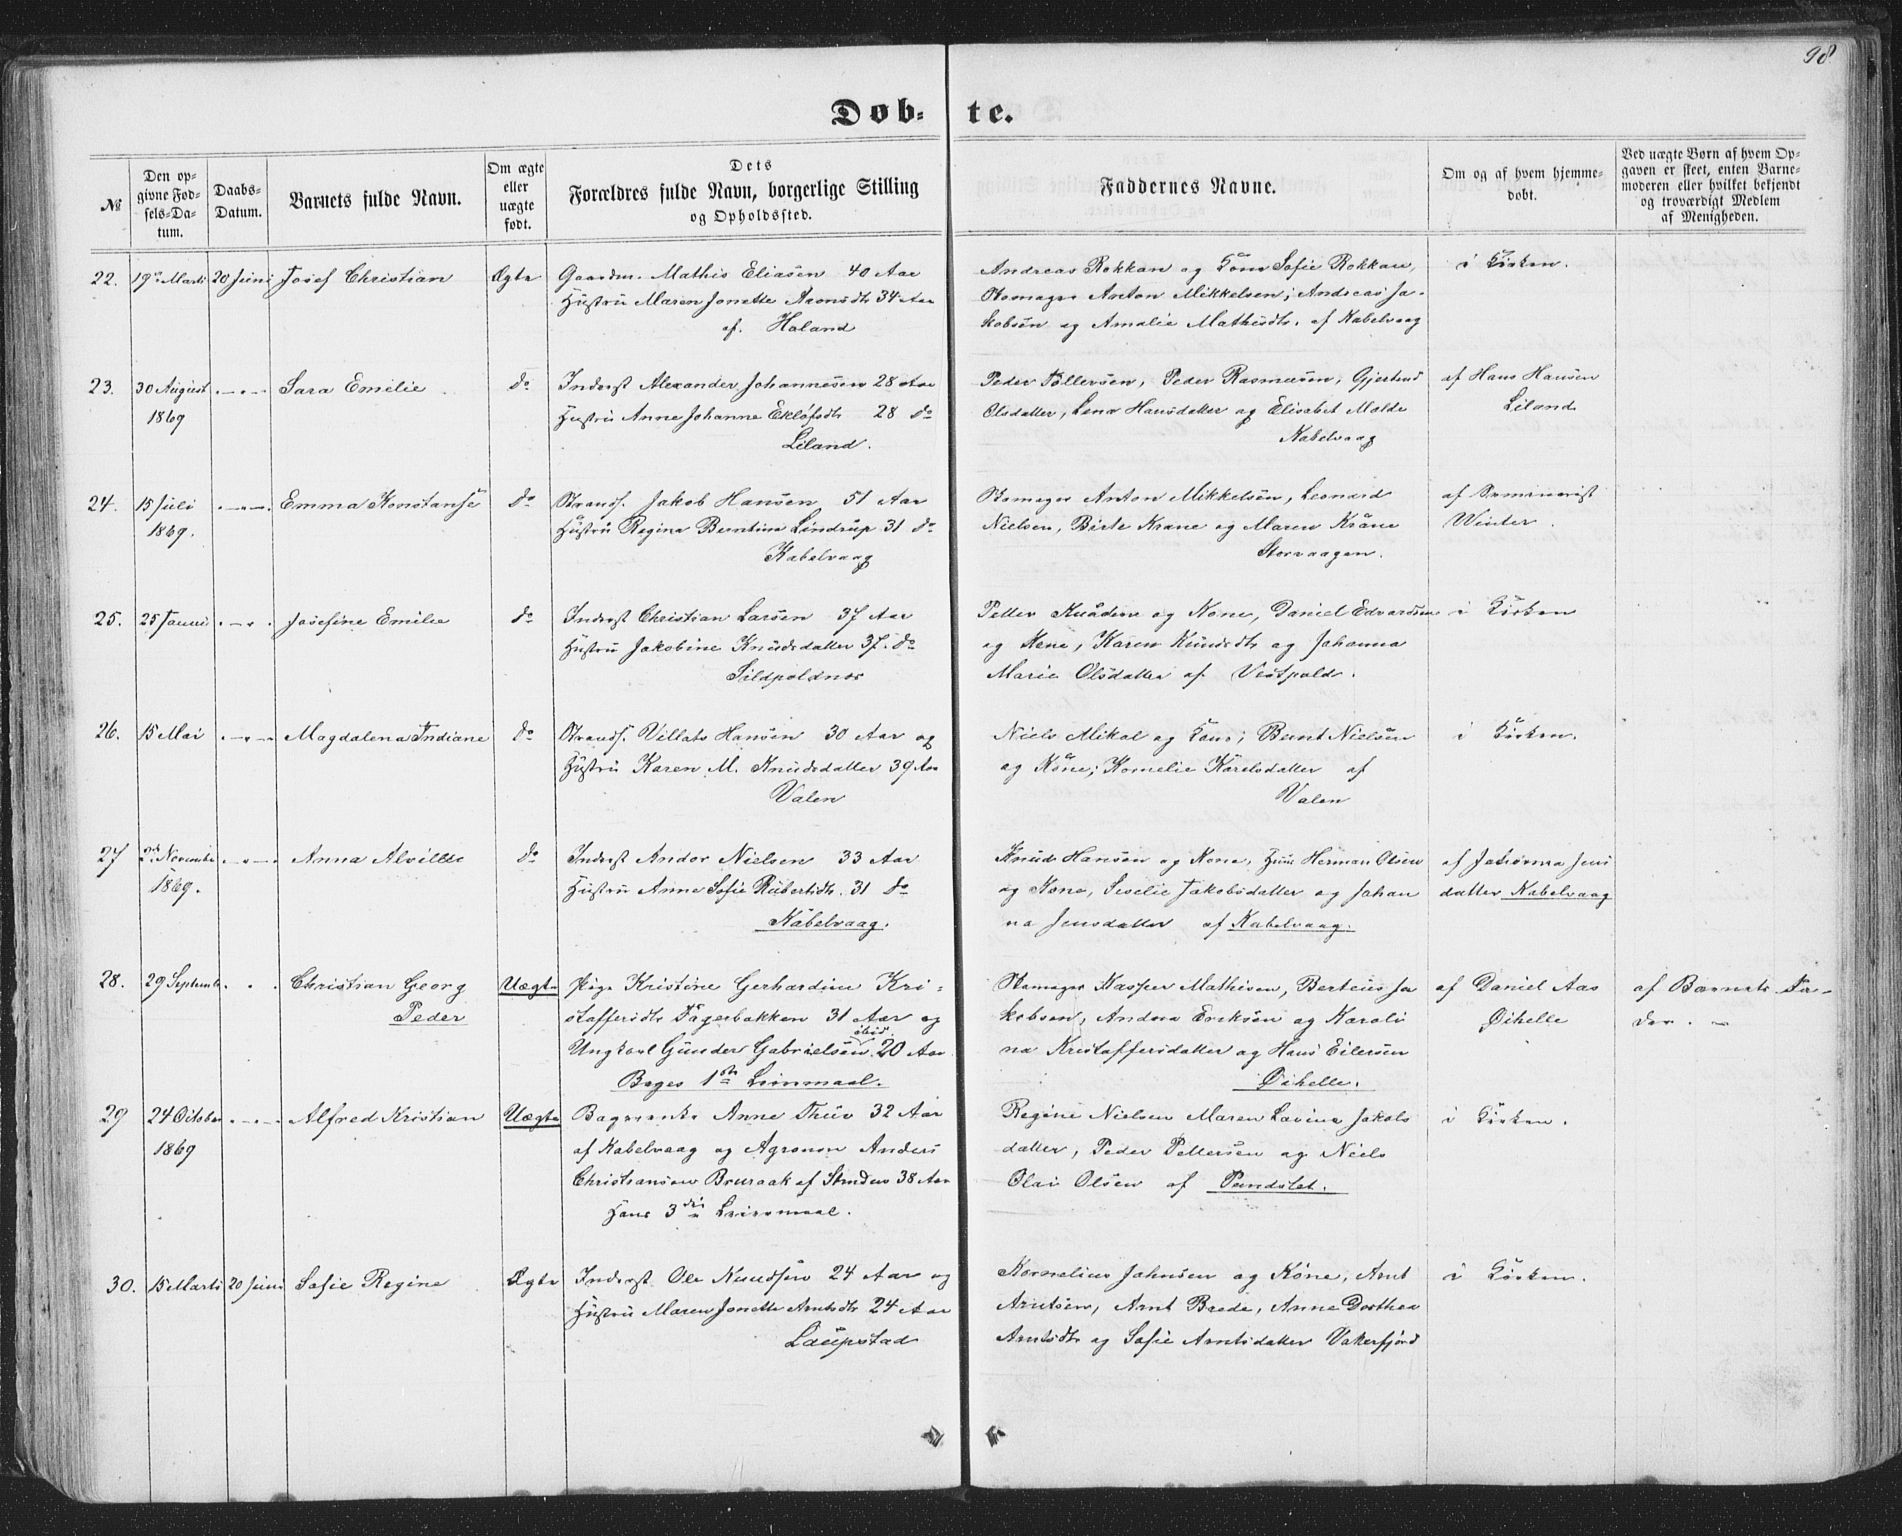 98
Døb- te.
№
Den opgivne Fødsels-Datum.
Daabs-Datum.
Barnets fulde Navn.
Om ægte eller uægte født.
Dets Forældres fulde Navn, borgerlige Stilling og Opholdssted.
Faddernes Navne.
Om og af hvem hjemmedøbt.
Ved uægte Børn af hvem Opgaven er skeet, enten Barnemoderen eller hvilket bekjendt og troværdigt Medlem af Menigheden.
22. 19 Marti 20 Juni Josef Christian Ægte Gaardm. Mathis Eliasen 40 Aar
Hustru Maren Jonette Aronsdtr 34 Aar
af Holand
Andreas Rokkan og Kone Sofie Rokkan,
Skomager Anton Mikkelsen, Andreas Jakobsen og Amalie Mathisdtr. af Kabelvaag
i Kirken.
23. 30 August 1869 Sara Emilie do Inderst Alexander Johannesen 28 Aar
Hustru Anne Johanne 28 do
Liland.
Peder Tollersen, Peder Rasmusen, Gjertrud
Olsdatter, Lena Hansdatter og Elisabet Molde
Kabelvaag
af Hans Hansen
Liland
24. 15 Juli 1869. Emma Konstanse do Strands. Jakob Hansen 51 Aar
Hustru Regina Berntine Lindrup 31 do
Kabelvaag
Skomager Anton Mikkelsen, Leonard
Nielsen, Birte Krane og Maren Krane
Storvaagen.
af Seminarist
Winter.
25. 25 Januar Josefine Emilie do Inderst Christian Larsen 37 Aar
Hustru Jakobine Knudsdatter 37. do
Sildpoldnes
Petter og Kone, Daniel Edvardsen
og Kone, Karen Knudsdtr og Johanna
Marie Olsdatter af Vestpold.
i Kirken
26. 15 Mai Magdalena Indiane do Strands. Villats Hansen 30 Aar og
Hustru Karen M. Knudsdatter 39 Aar
Valen
Niels Mikal og Kone; Bernt Nielsen
og Kone; Kornelie Karelsdatter af
Valen
i Kirken.
27 2d November 1869. Anna Alvilde do Inderst Andor Nielsen 33 Aar
Hustru Anne Sofie Robertsdtr. 31 do
Kabelvaag.
Knud Hansen og Kone, Herman Olsen
og Kone, Seselie Jakobsdatter og Johanna Jensdatter af Kabelvaag.
af Johanna Jensdatter Kabelvaag
28. 29 September Christian Georg
Peder
Uægte Pige Kristine Gerhardine Kristoffersdtr Fagerbakken 31 Aar og
Ungkarl Gunder Gabrielsen ibid. 20 Aar
Beges 1ste Leirmaal.
Skomager Kasper Mathisen, Berteus Jakobsen, Andrea Eriksen og Karolina Kristoffersdatter og Hans Eilersen
Øihelle.
af Daniel Aas
Øihelle
af Barnets Fader.
29 24 October 1869 Alfred Kristian Uægte Anne Thuv 32 Aar
af Kabelvaag og Agronom Anders
Christiansen Bruraak af 38 Aar
Hans 3die Leiermaal.
Regine Nielsen Maren Lovine Jakobsdatter, Peder Pettersen og Niels
Olai Olsen af Pundslet.
i Kirken.
30. 15 Marti 20 Juni Sofie Regine Ægte Inderst Ole Knudsen 24 Aar og
Hustru Maren Jonette Arntsdtr 24 Aar
Laupstad
Kornelius Johnsen og Kone, Arnt
Arntsen, Arnt Brede, Anne Dorthea
Arntsdtr og Sofie Arntsdatter Vaterfjord
i Kirken.